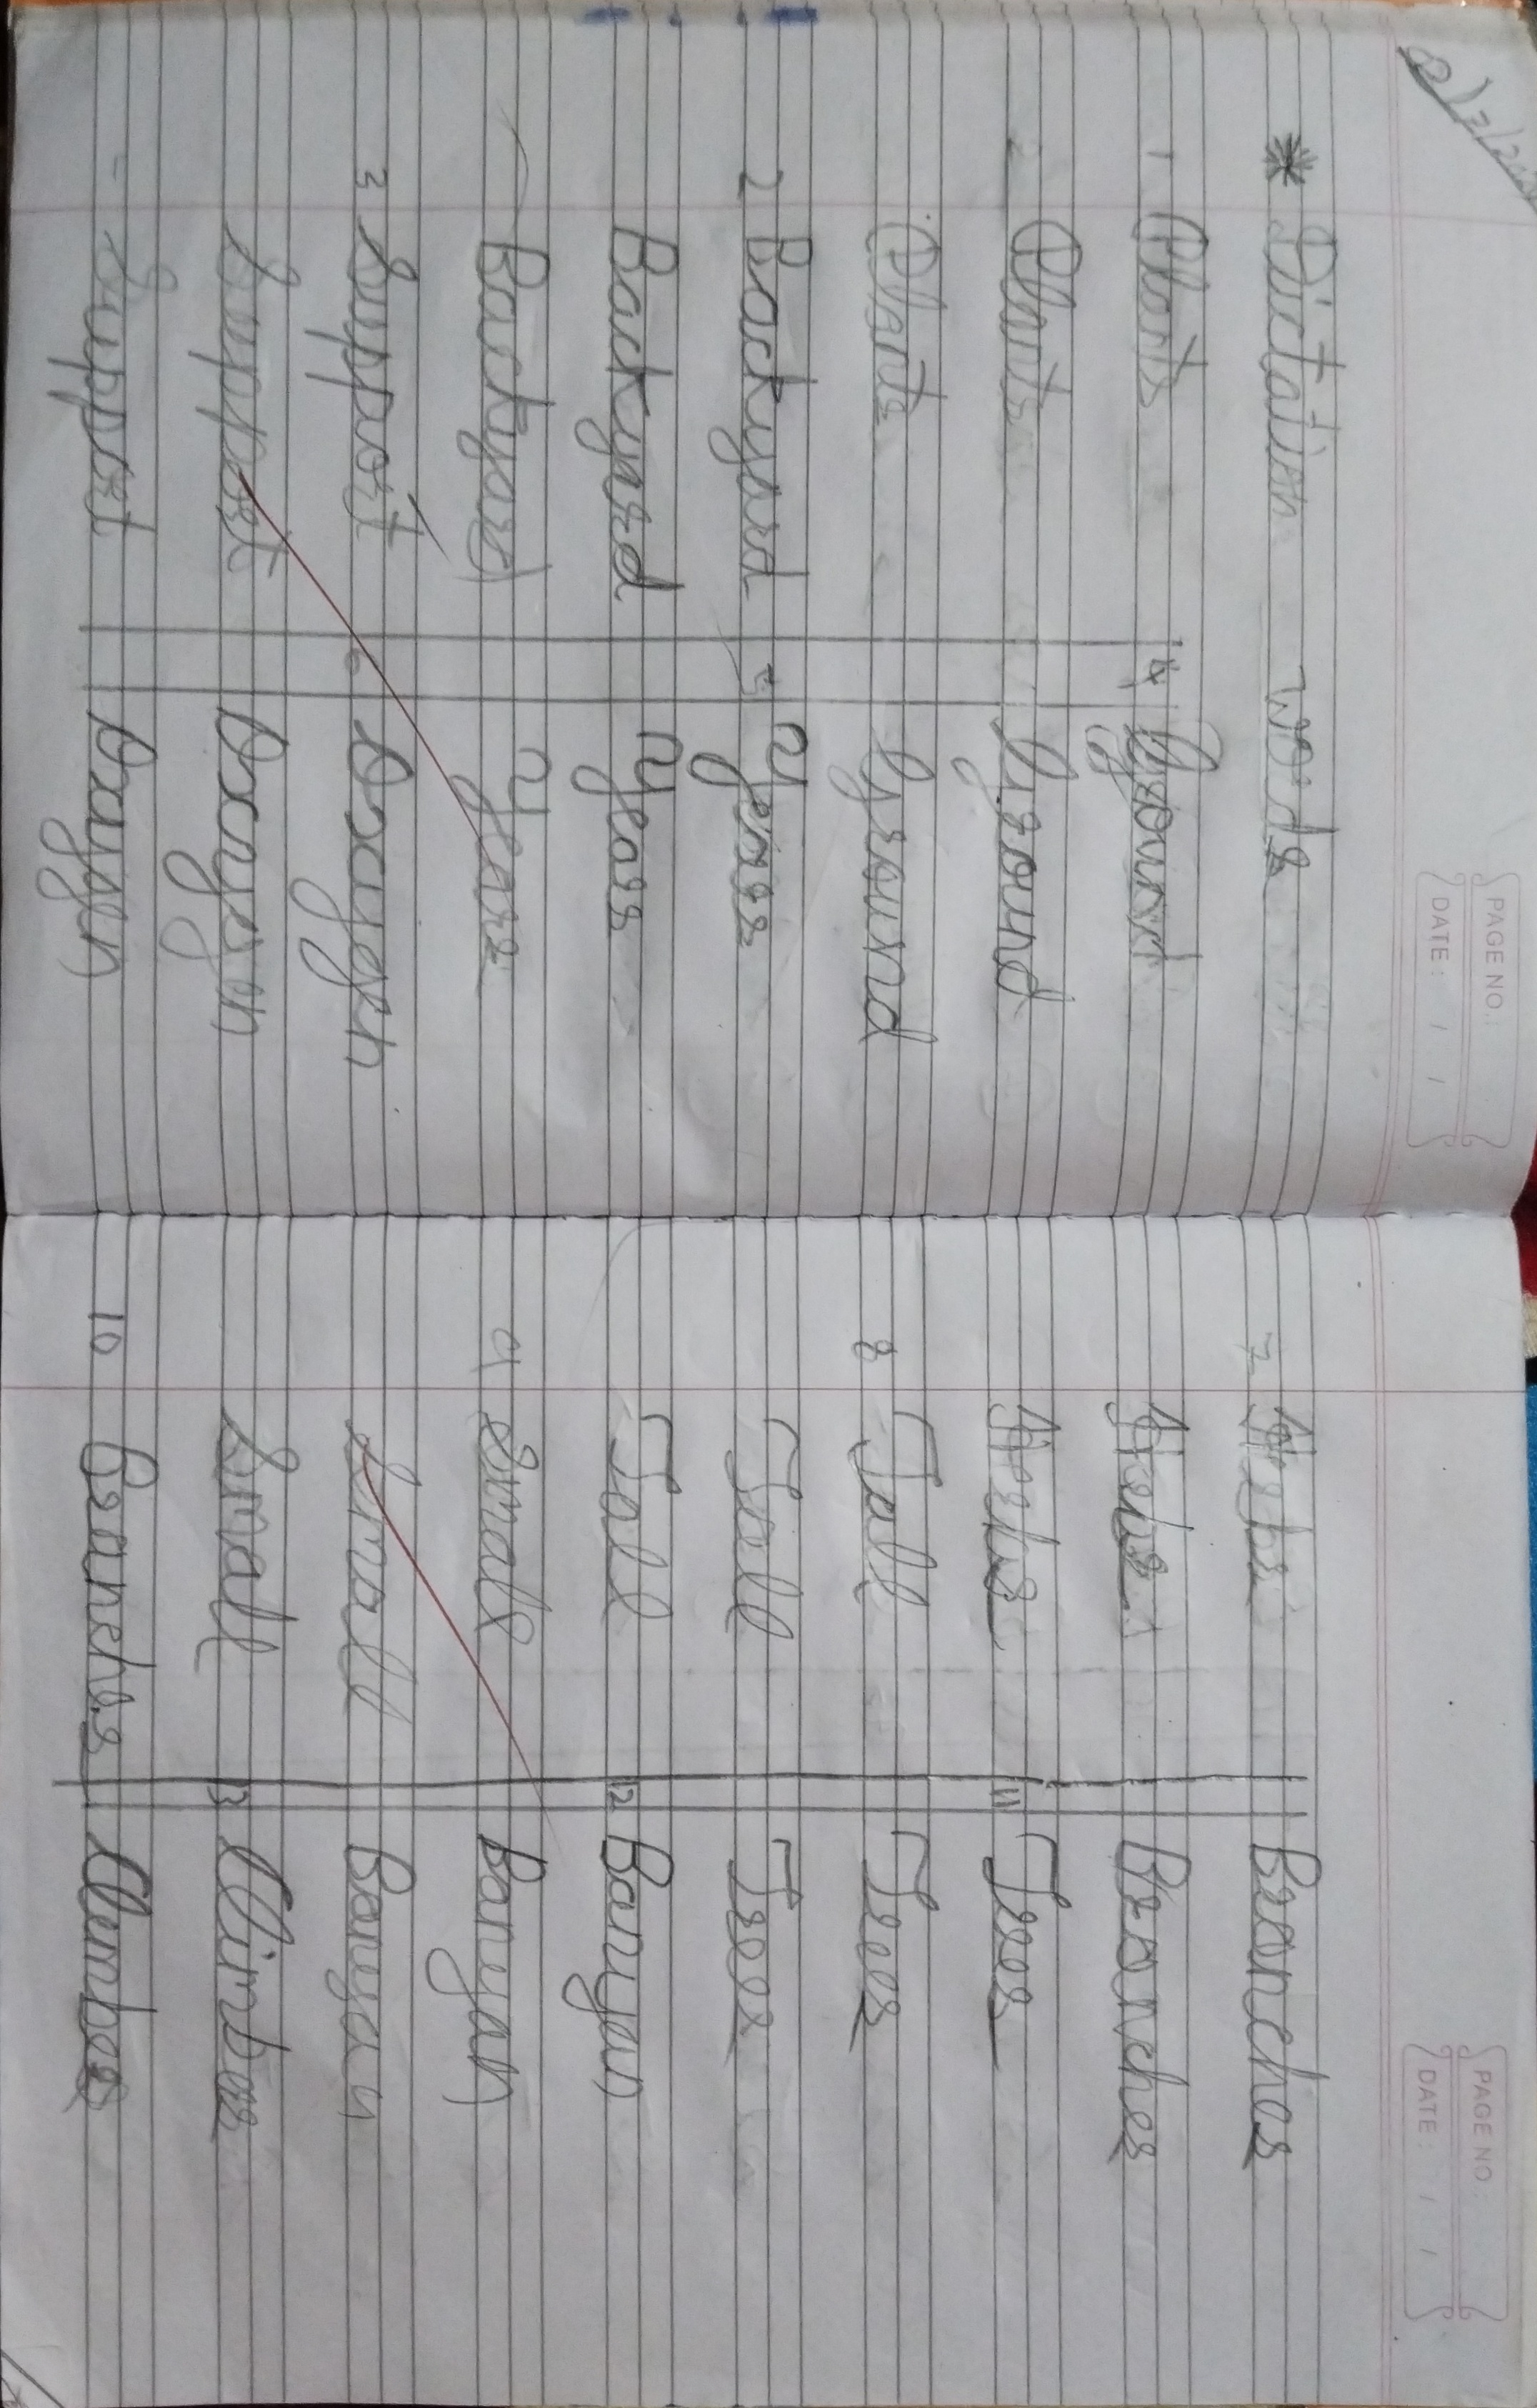 PAGE NO.:
DATE: / /
* Dictation words
1 Plants
Plants
Plants
2 Backyard
Backyard
Backyard
3 Support
Support
Support
4 Ground
Ground
Ground
5 Years
Years
Years
6 Oxygen
Oxygen
Oxygen
PAGE NO.:
DATE: / /
7 Herbs
Herbs
Herbs
8 Tall
Tall
Tall
9 Small
Small
Small
10 Branches
Branches
Branches
11 Trees
Trees
Trees
12 Banyan
Banyan
Banyan
13 Climbers
Climbers